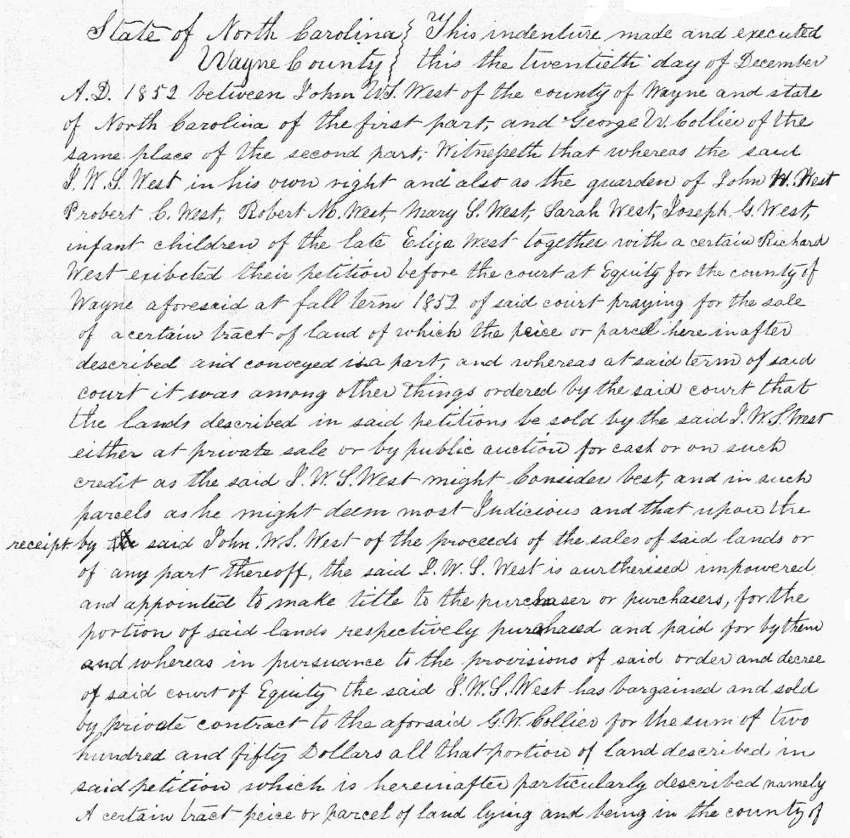 State of North Carolina } This indenture made and executed
Wayne County } this the twentieth day of December
A.D. 1852 between John W.S. West of the county of Wayne and state
of North Carolina of the first part, and George W. Collier of the
same place of the second part, Witnesseth that whereas the said
J. W. S. West in his own right and also as the guarden of John H. West
Probert C. West, Robert M. West, Mary S. West, Sarah West, Joseph G. West,
infant children of the late Eliza West together with a certain Richard
West exibeted their petition before the court at Equity for the county of
Wayne aforesaid at fall term 1852 of said court praying for the sale
of a certain tract of land of which the peice or parcel here inafter
described and conveyed is a part, and whereas at said term of said
court it was among other things ordered by the said court that
the lands described in said petitions be sold by the said J. W. S. West
either at private sale or by public auction for cash or on such
credit as the said J. W. S. West might Consider best, and in such
parcels as he might deem most Judicious and that upon the
receipt by the said John. W.S. West of the proceeds of the sales of said lands or
of any part thereoff, the said J. W. S. West is aurtherised impowered
and appointed to make title to the purchaser or purchasers, for the
portion of said lands respectively purchased and paid for by them
and whereas in pursuance to the provisions of said order and decree
of said court of Equity the said J. W. S. West has bargained and sold
by private contract to the aforsaid G. W. Collier for the sum of two
hundred and fifty Dollars all that portion of land described in
said petition which is hereinafter particularly described namely
A certain tract peice or parcel of land lying and being in the county of